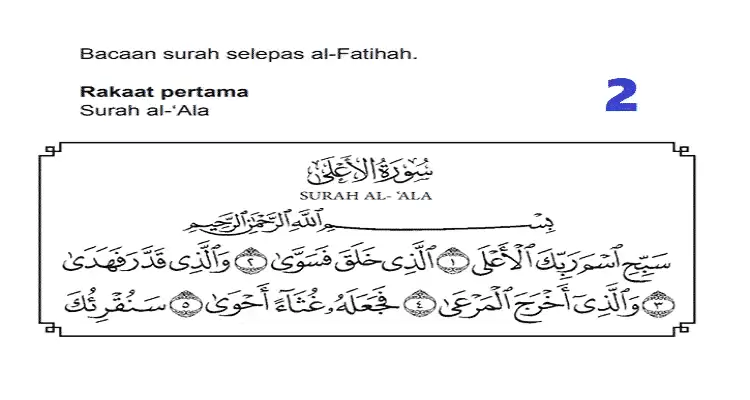 Bacaan surah selepas al-Fatihah.
Rakaat pertama
2
Surah al-‘Ala
سُورَةُ الأَعْلَىٰ
SURAH AL- ‘ALA
بِسْمِ اللَّهِ الرَّحْمَٰنِ الرَّحِيمِ
سَبِّحِ ٱسْمَ رَبِّكَ ٱلْأَعْلَى ١ ٱلَّذِى خَلَقَ فَسَوَّىٰ ٢ وَٱلَّذِى قَدَّرَ فَهَدَىٰ
٣ وَٱلَّذِىٓ أَخْرَجَ ٱلْمَرْعَىٰ ٤ فَجَعَلَهُۥ غُثَآءً أَحْوَىٰ ٥ سَنُقْرِئُكَ